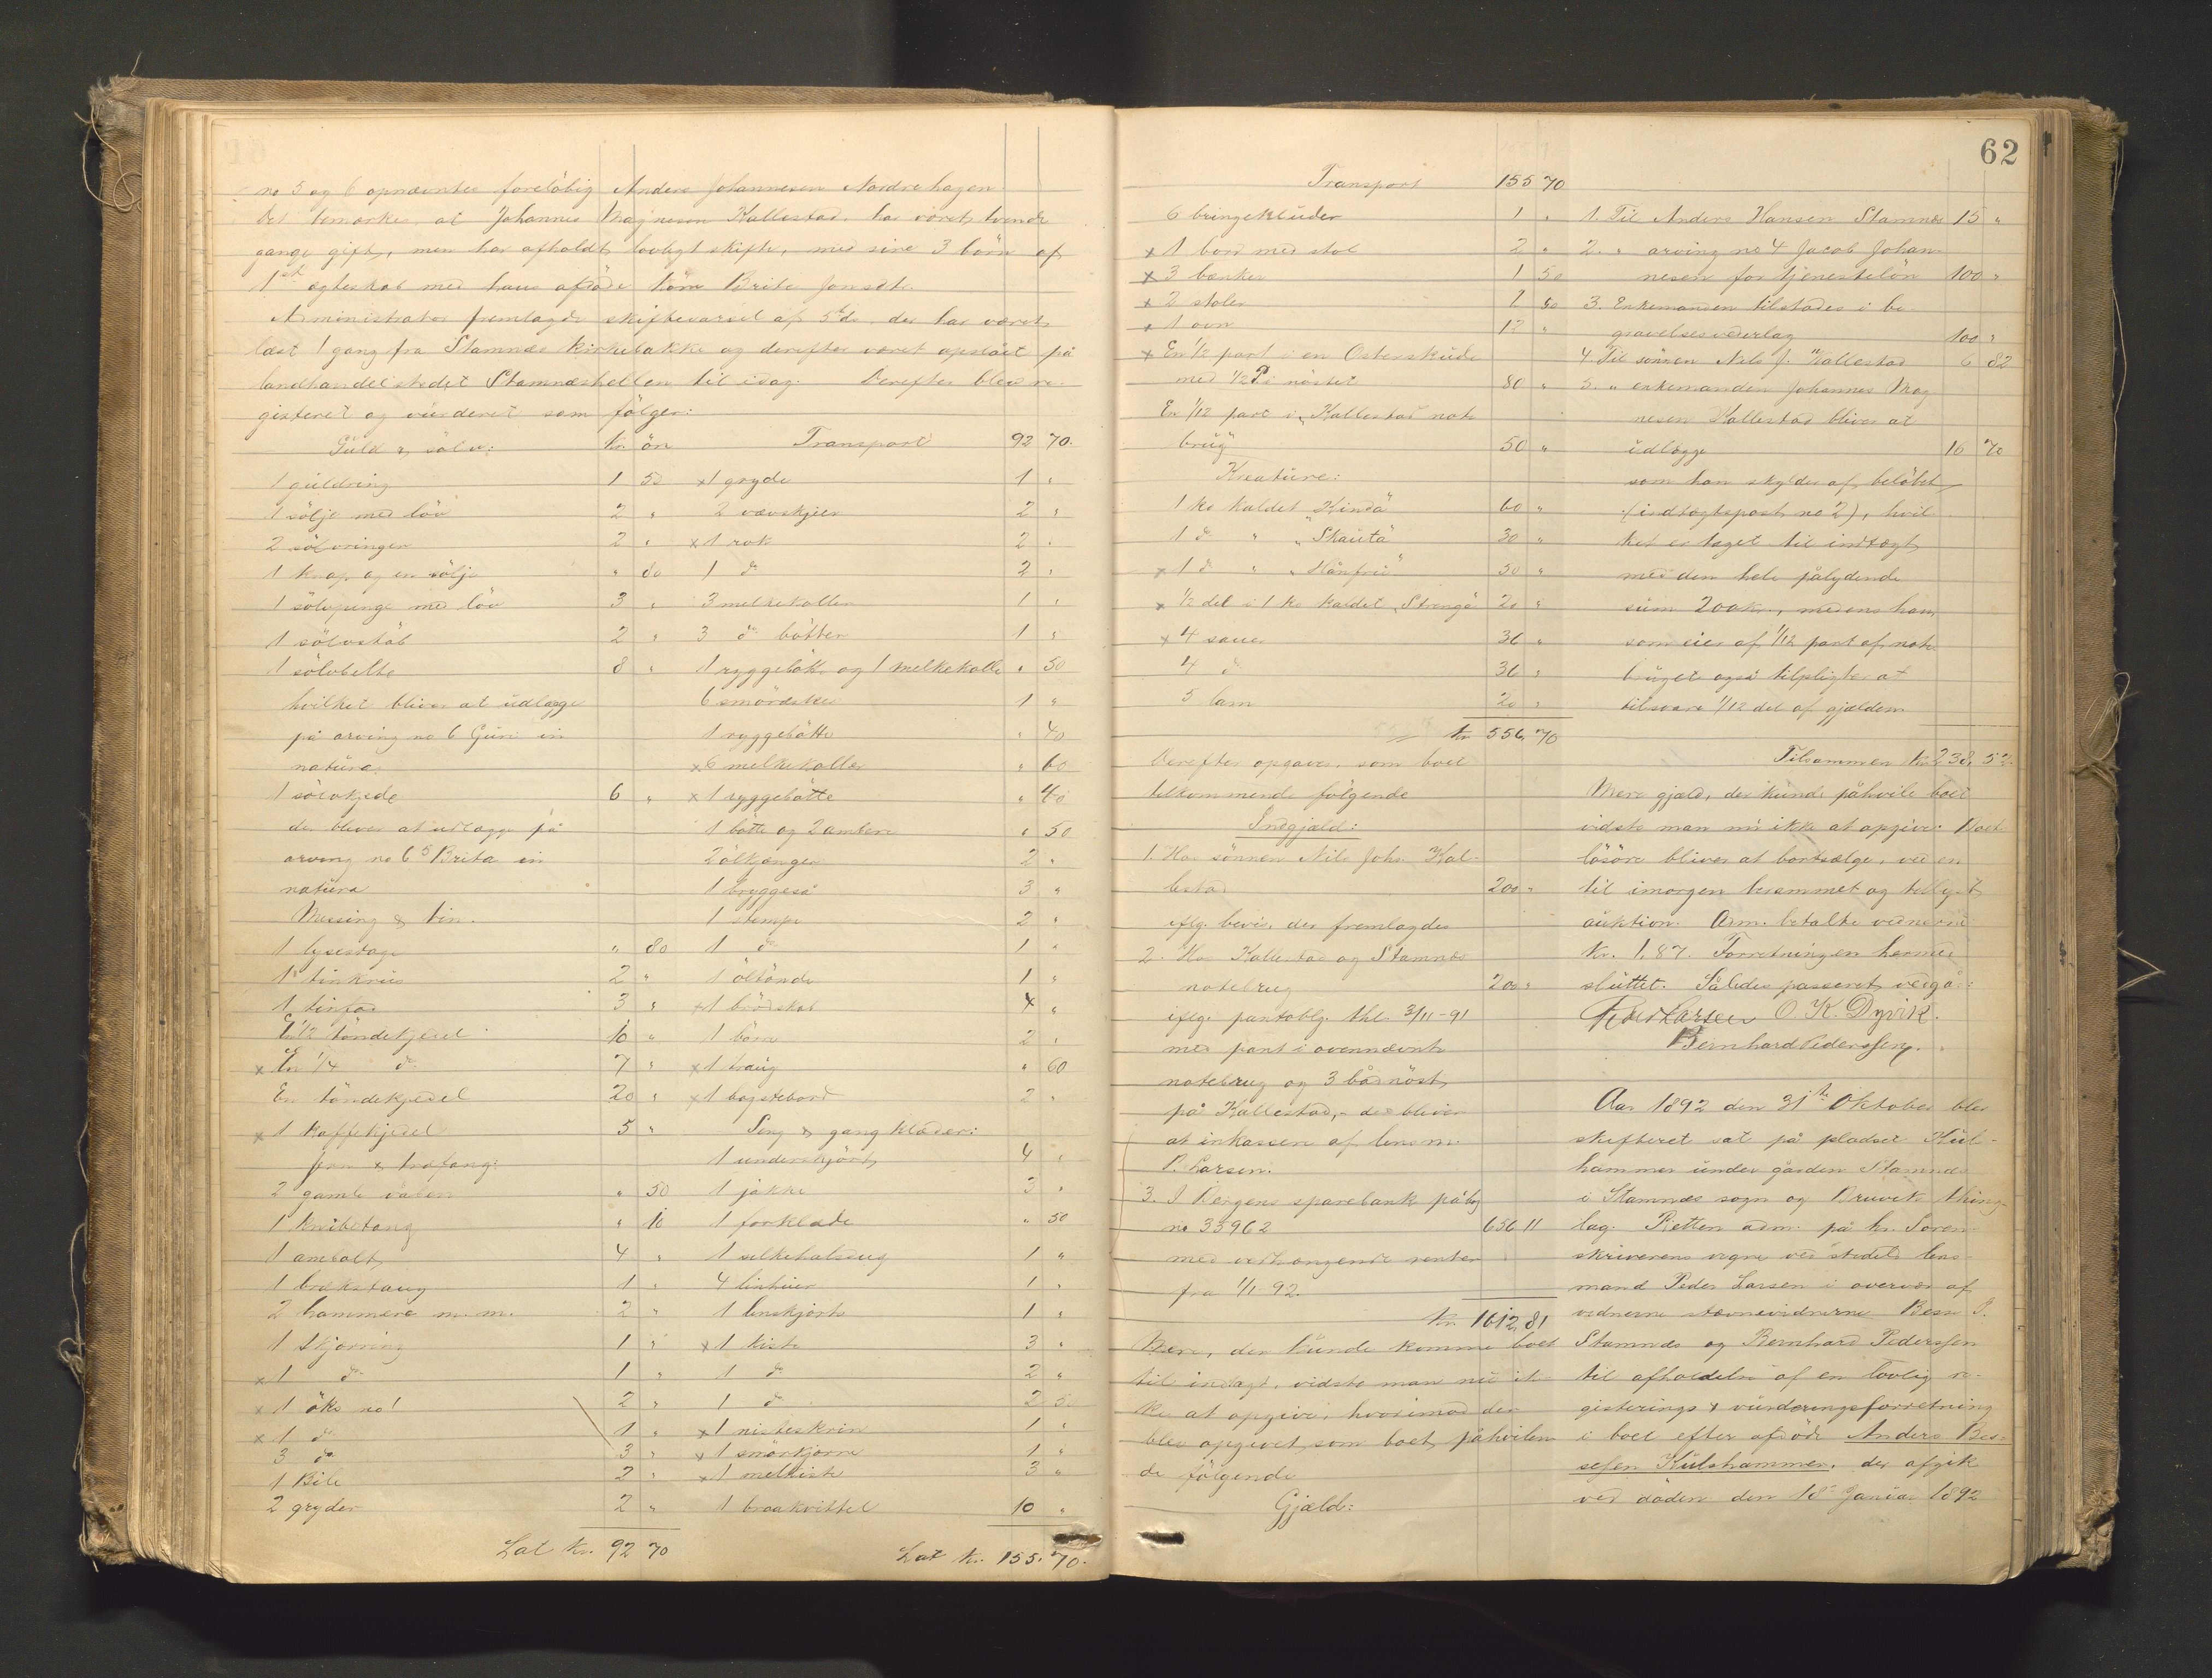 no 5 og 6 opnævntes forelöbig Anders Johannesen Nordrehagen.
Det bemærkes, at Johannes Magnesen Kallestad har været tvende
gange gift, men har afholdt lovligt skifte, med sine 3 börn af
1st ægteskab med hans afdöde kone Brita Jonsdt.
Administrator fremlagde skiftevarsel af 5te ds. der har været
læst 1 gang fra Stamnæs kirkebakke og derefter været opslået på
landhandelstedet Stamnæshellen til idag. Derefter blev re-
gisteret og vurderet som fölger:
Guld & sölv: Kr. öre
1 guldring 1 50
1 sölje med löv 2 "
2 sölvringer 2 "
1 knap og en sölje " 80
1 sölvpenge med löv 3 "
1 sölvstöb 2 "
1 sölvbelte 8 "
hvilket bliver at udlægge
på arving no 6 Guri in
natura.
1 sölvkjede 6 "
der bliver at udlægge på
arving no 5 Brita in
natura
Messing & tin.
1 lysestage " 80
1 tinkrus 2 "
1 tinfad 3 "
En 1/2 töndekjedel 10 "
x En 1/4 do 7 "
En töndekjedel 20 "
x 1 kaffekjedel 5 "
Jern & træfang:
2 gamle " 50
1 knibetang " 10
1 ambolt 4 "
1 brækstang 1 "
2 hammere m. m. 2 "
1 Skjæring 1 "
x 1 do 1 "
x 1 ökse no 1 2 "
x 1 do 1 "
3 do 3 "
1 Bile 2 "
2 gryder 2 "
Lat Kr. 92 70
Transport 92 70.
x 1 gryde 1 "
2 vævskjeer 2 "
x 1 rok 2 "
1 do 2 "
3 melkekoller 1 "
3 do bötter 1 "
1 ryggebötte og 1 melkekolle " 50
6 smördsker 1 "
1 ryggebötte " 40
x 6 melkekoller " 60
x 1 ryggebötte " 40
1 bötte og 2 ambere " 50
2 ölkjænger 2 "
1 bryggeså 3 "
1 stampe 2 "
1 do 1 "
1 öltönde 1 "
x 1 brödskab 4 "
1 2 "
x 1 traug " 60
x 1 bagstebord 2 "
Seng & gangklæder:
1 underskjört 4 "
1 jakke 3 "
1 forklæde " 50
1 silkehalsdug 1 "
4 lintuer 1 "
1 linskjorte 1 "
x 1 kiste 3 "
1 do 2 "
1 do 2 50
x 1 nisteskrin 1 "
x 1 smörkjærne 1 "
x 1 melkiste 3 "
1 braakvittel 10 "
Lat Kr. 155. 70.
62
Transport 155 70
6 bringekluder 1 "
x 1 bord med stol 2 "
x 3 bænker 1 50
x 2 stoler 1 50
x 1 ovn 12 "
x En 1/2 part i en Osterskude
med 1/2 P. i nöstet 80 "
En 1/12 part i „Kallestad not-
brug" 50 "
Kreature:
1 ko kaldet „Kinda" 60 "
1 do " „Skauta" 30 "
x 1 do " „Hånfrie" 50 "
x 1/2 del i 1 ko kaldet „Strenga" 20 "
x 4 sauer 36 "
4 do 36 "
5 lam 20 "
Kr. 556, 70
Derefter opgaves, som boet
tilkommende fölgende
Indgjæld:
1. Hos sönnen Nils Johs. Kal-
lestad 200 "
iflg. bevis, der fremlagdes
2. Hos Kallestad og Stamnæs
notebrug 200 "
iflg. pantoblg. thl. 3/11-91
med pant i ovennævnte
notebrug og 3 bådnöst
på Kallestad, - der bliver
at inkassere af lensm.
P. Larsen.
3. I Bergens sparebank på bog
no 33962 656 11
med vedhængende renter
fra 1/1-92.
Kr. 1612, 81
Mere, der kunde komme boet
til indtægt, vidste man nu ik-
ke at opgive, hvorimod der
blev opgivet, som boet påhvilen-
de fölgende
Gjæld:
1. Til Anders Hansen Stamnæs 15 "
2. " arving no 4 Jacob Johan-
nesen for tjenestelön 100 "
3. Enkemanden tilstodes i be-
gravelsesvederlag 100 "
4. Til sönnen Nils J. Kallestad 6 82
5. " enkemanden Johannes Mag-
nesen Kallestad bliver at
udlægge 16 70
som han skyldes af belöbet
(indtægtspost no 2), hvil-
ket er taget til indtægt
med den hele pålydende
sum 200 kr., medens han,
som eier af 1/12 part af not-
bruget også tilpligtes at
tilsvare 1/12 del af gjælden
Tilsammen Kr. 238, 52.
Mere gjæld, der kunde påhvile boet
vidste man nu ikke at opgive. Boets
lösöre bliver at bortsælge, ved en
til imorgen berammet og tillyst
auktion. Adm. betalte vidnerne
Kr. 1,87. Forretningen hermed
sluttet. Således passeret vidgår:
Peder Larsen O. K. Dyvik.
Bernhard Pederssen.
Aar 1892 den 31te Oktober blev
skifteret sat på pladset Kul-
hammer under gården Stamnæs
i Stamnæs sogn og Bruvik thing-
lag. Retten adm. på hr. Soren-
skriverens vegne ved stedets lens-
mand Peder Larsen i overvær af
vidnerne stævnevidnerne Besse J.
Stamnæs og Bernhard Pederssen
til afholdelse af en lovlig re-
gisterings & vurderingsforretning
i boet efter afdöde Anders Bes-
sesen Kulshammer, der afgik
ved döden den 18de Januar 1892